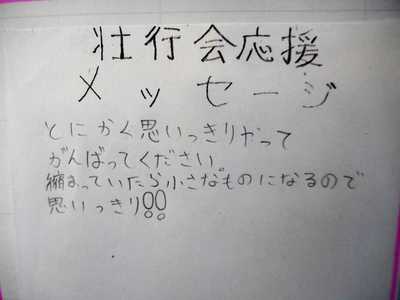 壮行会応援
メッセージ
とにかく思いっきりやって
がんばってください。
縮まっていたら小さなものになるので
思いっきり!!